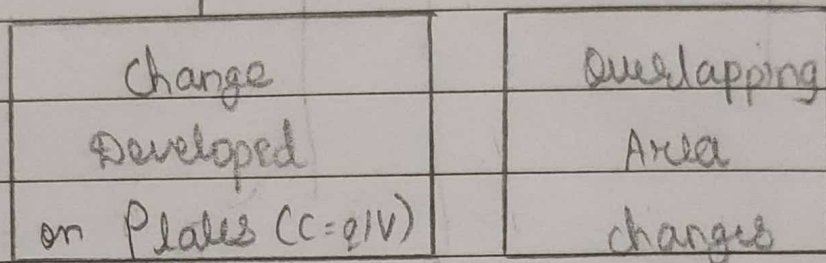 Change
Developed
on Plates (C=Q/V)
Overlapping
Area
changes